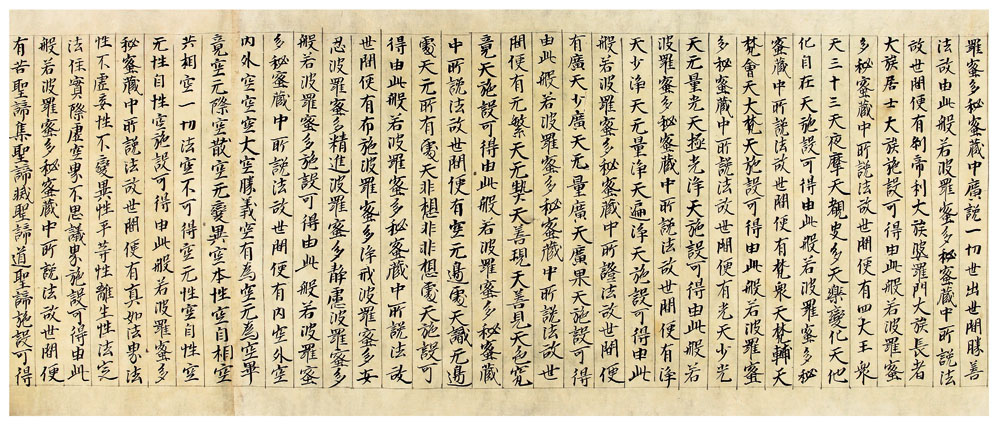 羅蜜多秘蜜藏中廣說一切世出世間勝善
法故由此般若波羅蜜多秘蜜藏中所說法
故世間便有剎帝利大族婆羅門大族長者
大族居士大族施設可得由此般若波羅蜜
多秘蜜藏中所說法故世間便有四大王衆
天三十三天夜摩天覩史多天樂變化天他
化自在天施設可得由此般若波羅蜜多秘
蜜藏中所說法故世間便有梵衆天梵輔天
梵會天大梵天施設可得由此般若波羅蜜
多秘蜜藏中所說法故世間便有光天少光
天无量光天極光淨天施設可得由此般若
波羅蜜多秘蜜藏中所說法故世間便有淨
天少淨天无量淨天遍淨天施設可得由此
般若波羅蜜多秘蜜藏中所說法故世間便
有廣天少廣天无量廣天廣果天施設可得
由此般若波羅蜜多秘蜜藏中所說法故世
間便有无繁天无熱天善現天善見天色究
竟天施設可得由此般若波羅蜜多秘蜜藏
中所說法故世間便有空无邊處天識无邊
處天无所有處天非想非非想處天施設可
得由此般若波羅蜜多秘蜜藏中所說法故
世間便有布施波羅蜜多淨戒波羅蜜多安
忍波羅蜜多精進波羅蜜多靜慮波羅蜜多
般若波羅蜜多施設可得由此般若波羅蜜
多秘蜜藏中所說法故世間便有內空外空
內外空空空大空勝義空有為空无為空畢
竟空无際空散空无變異空本性空自相空
共相空一切法空不可得空无性空自性空
无性自性空施設可得由此般若波羅蜜多
秘蜜藏中所說法故世間便有真如法界法
性不虛妄性不變異性平等性離生性法定
法住實際虛空界不思議界施設可得由此
般若波羅蜜多秘蜜藏中所說法故世間便
有苦聖諦集聖諦滅聖諦道聖諦施設可得